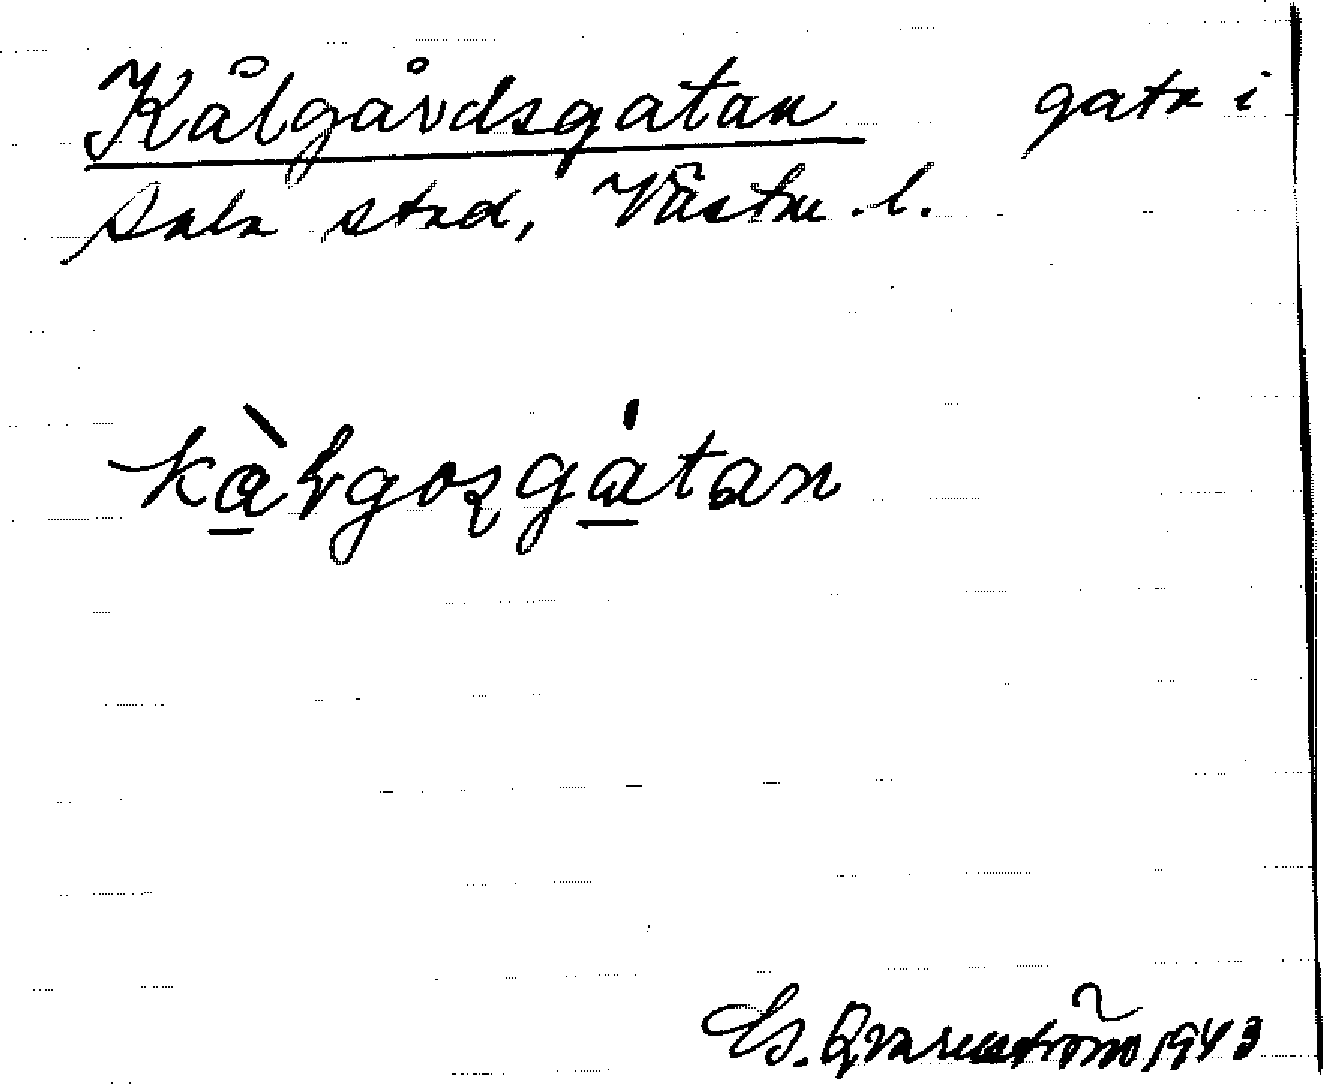 Kålgårdsgatan gata i
Sala stad, Västm. l.
kàlgosgátan
Es. Qvarnström 1943